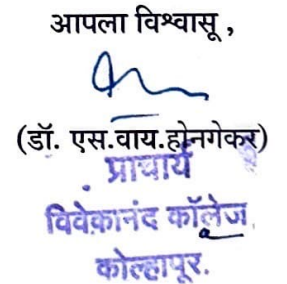 आपला विश्वासू ,
(डॉ. एस.वाय.होनगेकर)
प्राचार्य
विवेकानंद कॉलेज,
कोल्हापूर.